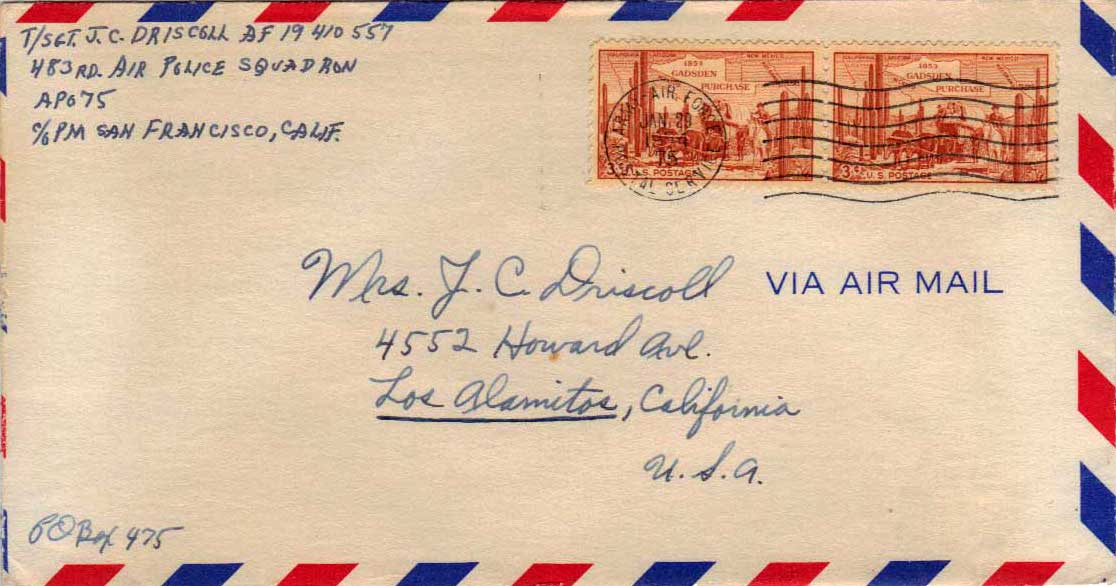 T/SGT. J. C. DRISCOLL AF 19 410 557
483RD. AIR POLICE SQUADRON
APO 75
c/o PM SAN FRANCISCO, CALIF.
CALIFORNIA ARIZONA NEW MEXICO
1853
GADSDEN
PURCHASE
3¢ U.S. POSTAGE
CALIFORNIA ARIZONA NEW MEXICO
1853
GADSDEN
PURCHASE
3¢ U.S. POSTAGE
ARMY-AIR FORCE
JAN 29
75
POSTAL SERVICE
Mrs. J. C. Driscoll
VIA AIR MAIL
4552 Howard Ave.
Los Alamitos, California
U.S.A.
PO Box 475